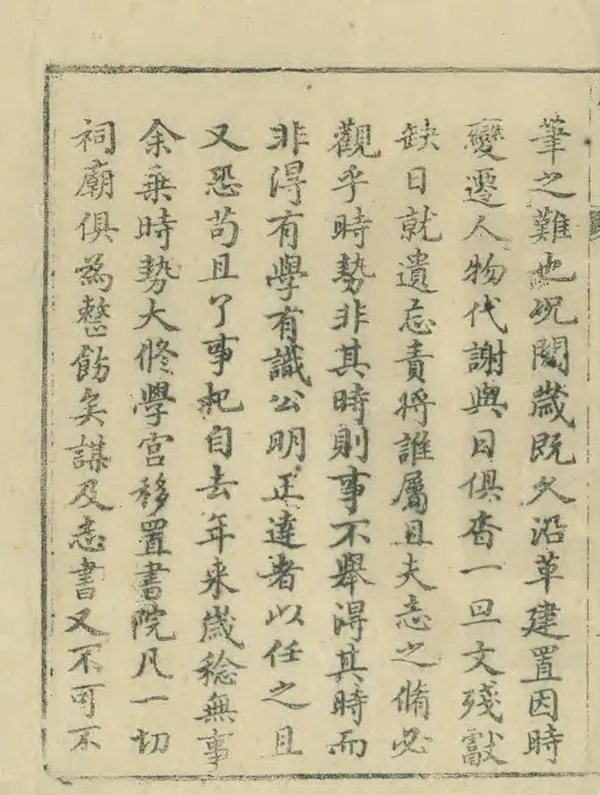 筆之難也況閱歲既久沿革建置因時
變遷人物代謝與日俱杳一旦文殘獻
缺日就遺忘責將誰屬且夫志之脩必
觀乎時勢非其時則事不舉得其時而
非得有學有識公明正達者以任之且
又恐苟且了事杞自去年来歲稔無事
余乗時勢大修學宮移置書院凡一切
祠廟俱為整飭矣謀及志書又不可不